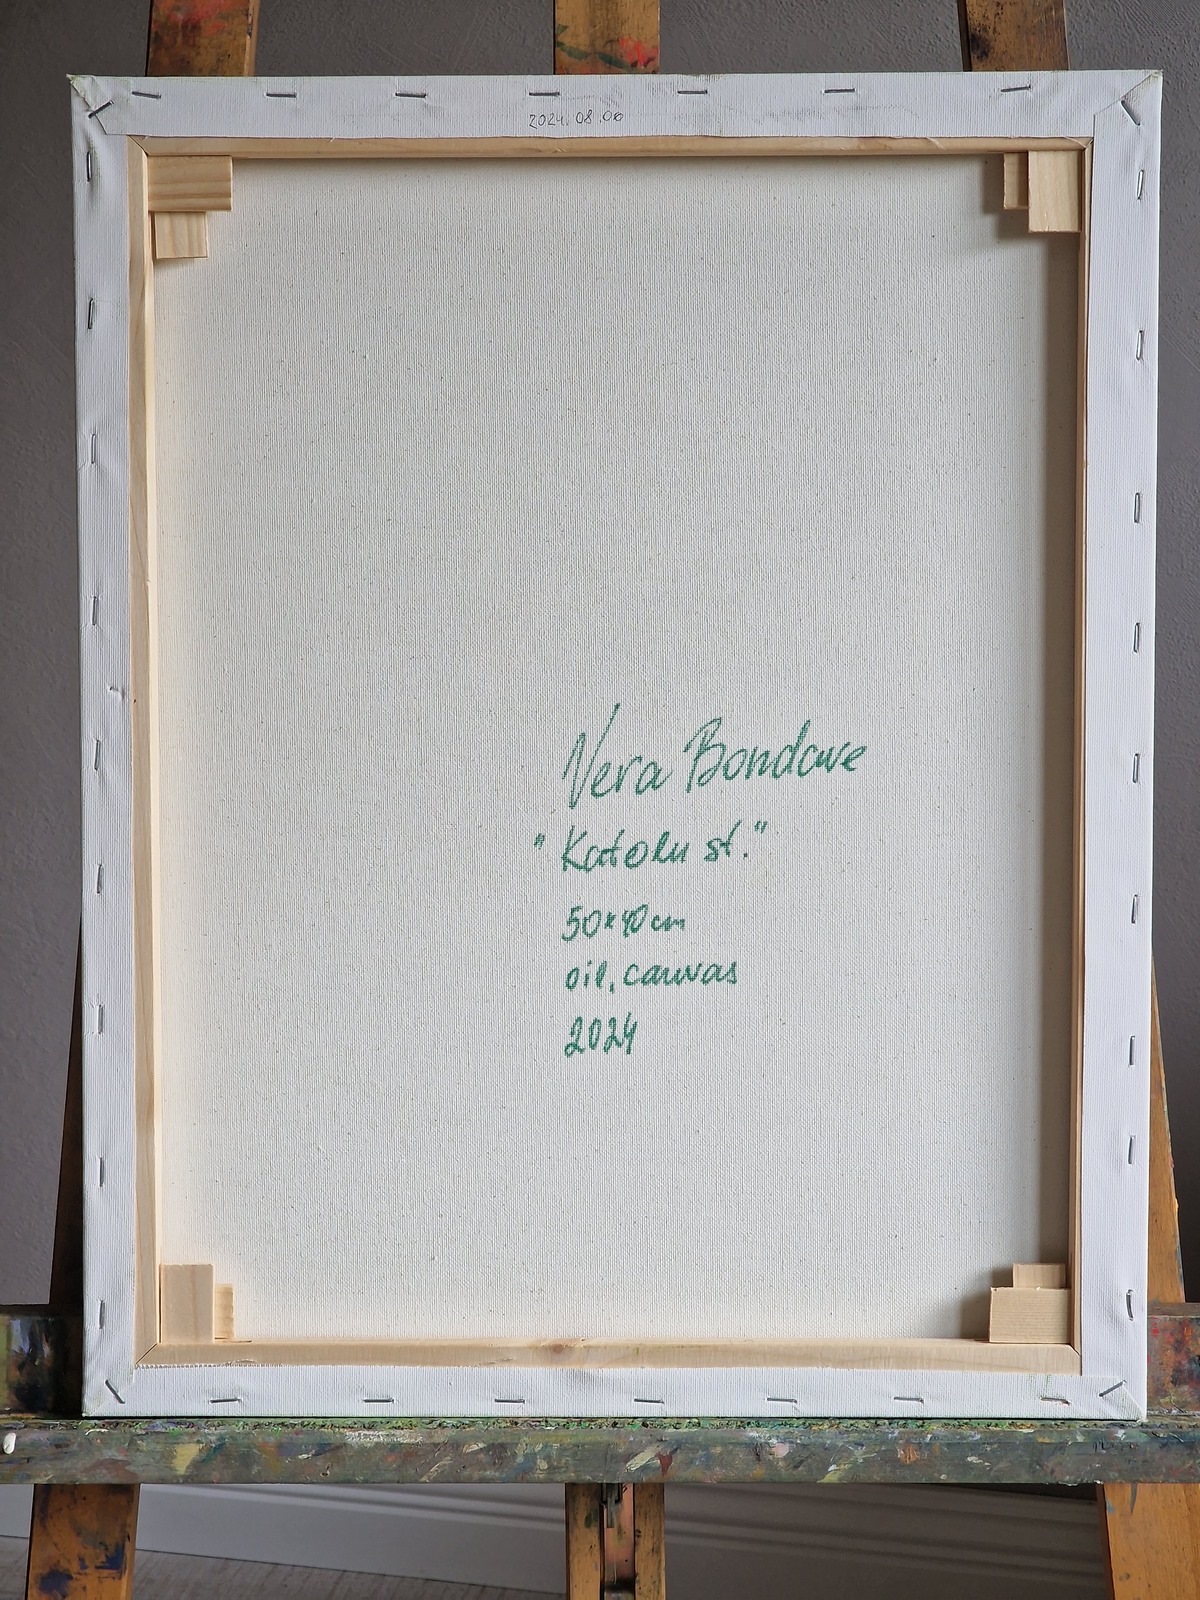 2024.08.06
Vera Bondare
"Katoļu st."
50x40cm
oil, canvas
2024